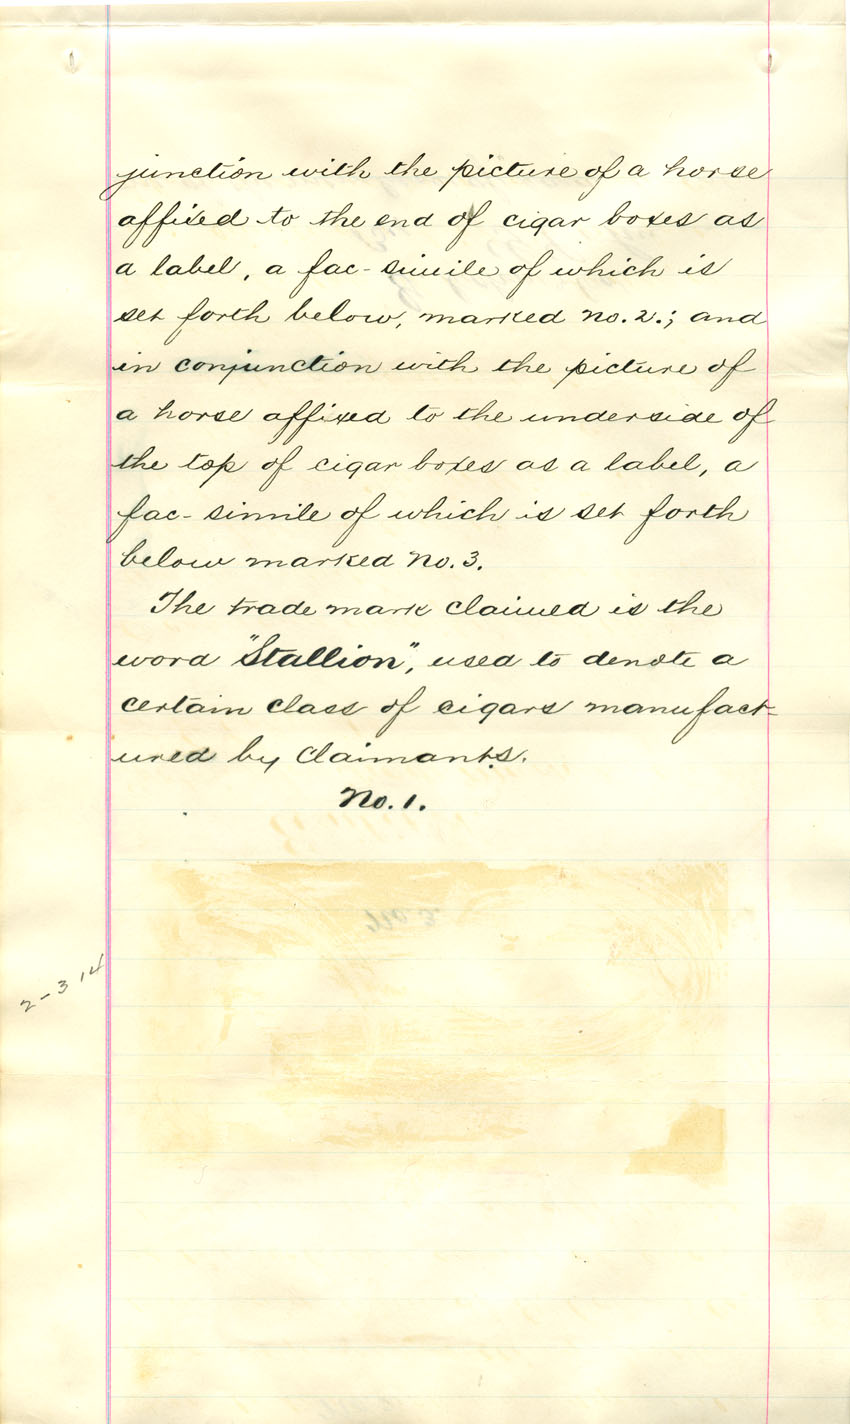 junction with the picture of a horse
affixed to the end of cigar boxes as
a label, a fac-simile of which is
set forth below, marked No. 2.; and
in conjunction with the picture of
a horse affixed to the underside of
the top of cigar boxes as a label, a
fac-simile of which is set forth
below marked No. 3.
The trade mark claimed is the
word "Stallion", used to denote a
certain class of cigars manufact-
ured by Claimants.
No. 1.
No 3.
2-314